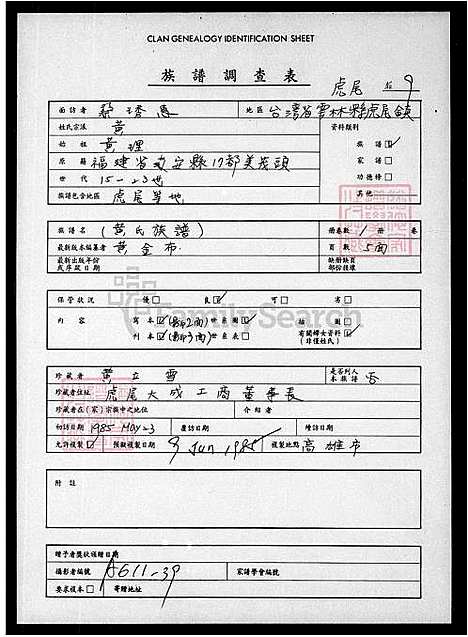 CLAN GENEALOGY IDENTIFICATION SHEET
族譜調查表
虎尾 9
面訪者 地區 台灣省雲林縣虎尾鎮
姓氏宗派 黃 資料類別
始祖 黃理 族譜 ☑
原籍 福建省南安縣17都美茂頭 家譜 □
世代 15-23世 功德榜 □
族譜包含地區 虎尾等地 其他
族譜名 (黃氏族譜) 冊卷數 1 冊 卷
最新版本編纂者 黃金布 頁數 5面
最新出版年份或序跋日期 缺冊缺頁部份註係
保管狀況 優 □ 良 ☑ 可 □ 劣 □
內容 寫本 ☑ (影印2面) 世系圖 ☑ 插圖 □
刊本 ☑ (影印3面) 世系表 □ 有關婦女資料 ☑ (非僅姓氏)
FamilySearch
珍藏者 黃立雪 是否列入本族譜 否
珍藏者住址 虎尾大成工商董事長
珍藏者在(家)宗族中之地位 介紹者
初訪日期 1985 MAY-23 覆訪日期 續訪日期
允許複製 ☑ 預擬複製日期 9 Jun 1985 複製地點 高雄市
附註
贈予者獎狀頒贈日期
攝影者編號 A611-39 家譜學會編號
要求複本 □ 寄贈地址